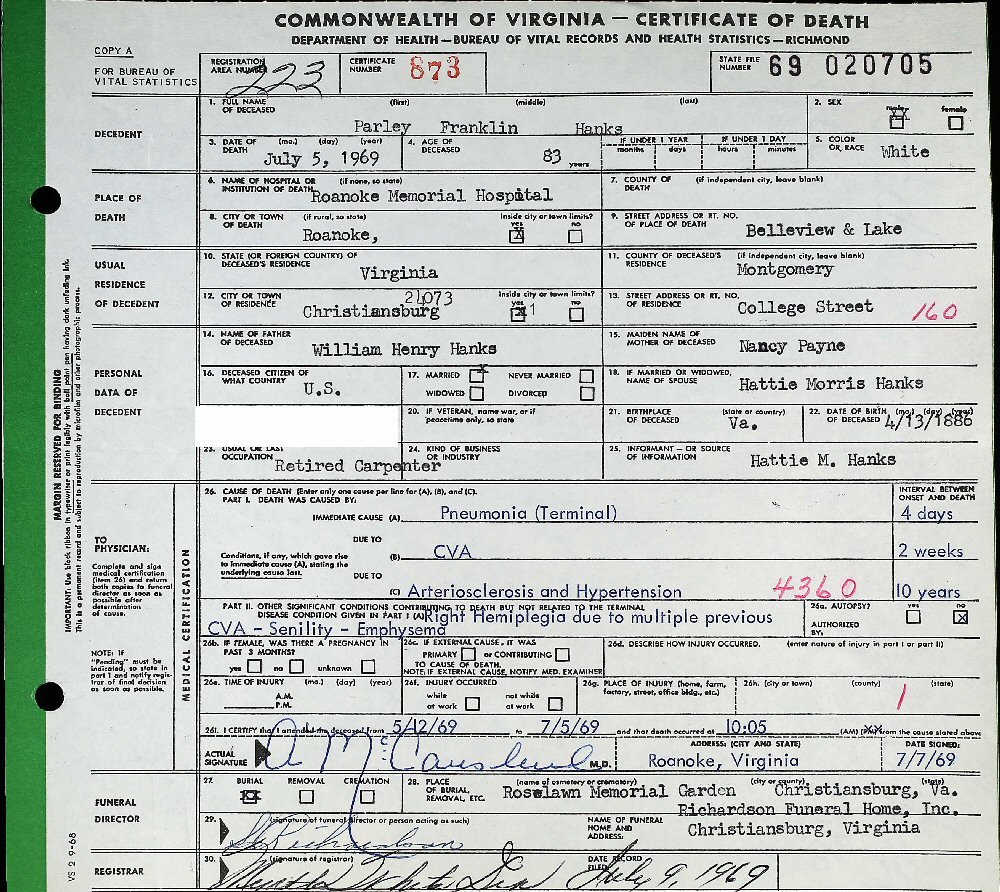 COMMONWEALTH OF VIRGINIA — CERTIFICATE OF DEATH
DEPARTMENT OF HEALTH — BUREAU OF VITAL RECORDS AND HEALTH STATISTICS — RICHMOND
COPY A
FOR BUREAU OF VITAL STATISTICS
REGISTRATION AREA NUMBER 223
CERTIFICATE NUMBER 873
STATE FILE NUMBER 69 020705
DECEDENT
1. FULL NAME OF DECEASED (first) (middle) (last)
Parley Franklin Hanks
2. SEX male X female
3. DATE OF DEATH (mo.) (day) (year)
July 5, 1969
4. AGE OF DECEASED 83 years
IF UNDER 1 YEAR months days
IF UNDER 1 DAY hours minutes
5. COLOR OR RACE White
PLACE OF DEATH
6. NAME OF HOSPITAL OR INSTITUTION OF DEATH (if none, so state)
Roanoke Memorial Hospital
7. COUNTY OF DEATH (if independent city, leave blank)
8. CITY OR TOWN OF DEATH (if rural, so state)
Roanoke,
inside city or town limits? yes X no
9. STREET ADDRESS OR RT. NO. OF PLACE OF DEATH
Belleview & Lake
USUAL RESIDENCE OF DECEDENT
10. STATE (OR FOREIGN COUNTRY) OF DECEASED'S RESIDENCE
Virginia
11. COUNTY OF DECEASED'S RESIDENCE (if independent city, leave blank)
Montgomery
12. CITY OR TOWN OF RESIDENCE
24073
Christiansburg
inside city or town limits? yes X 1 no
13. STREET ADDRESS OR RT. NO. OF RESIDENCE
College Street 160
PERSONAL DATA OF DECEDENT
14. NAME OF FATHER OF DECEASED
William Henry Hanks
15. MAIDEN NAME OF MOTHER OF DECEASED
Nancy Payne
16. DECEASED CITIZEN OF WHAT COUNTRY
U.S.
17. MARRIED X NEVER MARRIED
WIDOWED DIVORCED
18. IF MARRIED OR WIDOWED, NAME OF SPOUSE
Hattie Morris Hanks
20. IF VETERAN, name war, or if peacetime only, so state
21. BIRTHPLACE OF DECEASED (state or country)
Va.
22. DATE OF BIRTH OF DECEASED (mo.) (day) (year)
4/13/1886
23. USUAL OR LAST OCCUPATION
Retired Carpenter
24. KIND OF BUSINESS OR INDUSTRY
25. INFORMANT — OR SOURCE OF INFORMATION
Hattie M. Hanks
MARGIN RESERVED FOR BINDING
IMPORTANT: Use black ribbon in typewriter or print legibly with ball point pen having dark unfading ink.
This is a permanent record and subject to reproduction by microfilm and other photographic process.
TO PHYSICIAN:
Complete and sign medical certification (item 26) and return both copies to funeral director as soon as possible after determination of cause.
NOTE: IF "Pending" must be indicated, so state in part I and notify registrar of final decision as soon as possible.
MEDICAL CERTIFICATION
26. CAUSE OF DEATH (Enter only one cause per line for (A), (B), and (C).
PART I. DEATH WAS CAUSED BY:
INTERVAL BETWEEN ONSET AND DEATH
IMMEDIATE CAUSE (A) Pneumonia (Terminal) 4 days
DUE TO
Conditions, if any, which gave rise to immediate cause (A), stating the underlying cause last.
(B) CVA 2 weeks
DUE TO
(C) Arteriosclerosis and Hypertension 4360 10 years
PART II. OTHER SIGNIFICANT CONDITIONS CONTRIBUTING TO DEATH BUT NOT RELATED TO THE TERMINAL DISEASE CONDITION GIVEN IN PART I (A)
Right Hemiplegia due to multiple previous
CVA - Senility - Emphysema
26a. AUTOPSY? yes no X
AUTHORIZED BY:
26b. IF FEMALE, WAS THERE A PREGNANCY IN PAST 3 MONTHS?
yes no unknown
26c. IF EXTERNAL CAUSE, IT WAS
PRIMARY or CONTRIBUTING
TO CAUSE OF DEATH.
NOTE: IF EXTERNAL CAUSE, NOTIFY MED. EXAMINER
26d. DESCRIBE HOW INJURY OCCURRED. (enter nature of injury in part I or part II)
26e. TIME OF INJURY (mo.) (day) (year)
A.M.
P.M.
26f. INJURY OCCURRED
while at work not while at work
26g. PLACE OF INJURY (home, farm, factory, street, office bldg., etc.)
26h. (city or town) (county) (state)
1
26i. I CERTIFY that I attended the deceased from 5/12/69 to 7/5/69 and that death occurred at 10:05 (AM) (PM) from the cause stated above
ACTUAL SIGNATURE M.D.
ADDRESS: (CITY AND STATE)
Roanoke, Virginia
DATE SIGNED:
7/7/69
FUNERAL DIRECTOR
27. BURIAL X REMOVAL CREMATION
28. PLACE OF BURIAL, REMOVAL, ETC. (name of cemetery or crematory) (city or county) (state)
Roselawn Memorial Garden Christiansburg, Va.
29. (signature of funeral director or person acting as such)
NAME OF FUNERAL HOME AND ADDRESS:
Richardson Funeral Home, Inc.
Christiansburg, Virginia
REGISTRAR
30. (signature of registrar)
DATE RECORD FILED: July 9, 1969
VS 2 9-68